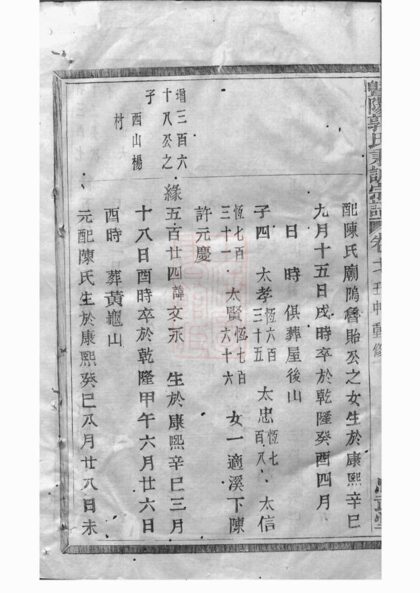 暨陽郭氏宗譜 卷
配陳氏廟隖 貽公之女生於康熙辛巳
九月十五日戌時卒於乾隆癸酉四月
日 時 俱葬屋後山
子四 太孝 恆六百三十五 太忠 恆七百八 太信
恆七百三十一 太賢 恆七百六十六 女一適溪下陳
許元慶
緣五百廿四諱文永 生於康熙辛巳三月
十八日酉時卒於乾隆甲午六月廿六日
酉時 葬黃 山
元配陳氏生於康熙癸巳八月廿八日未
增三百六
十八公之
子
西山楊
村